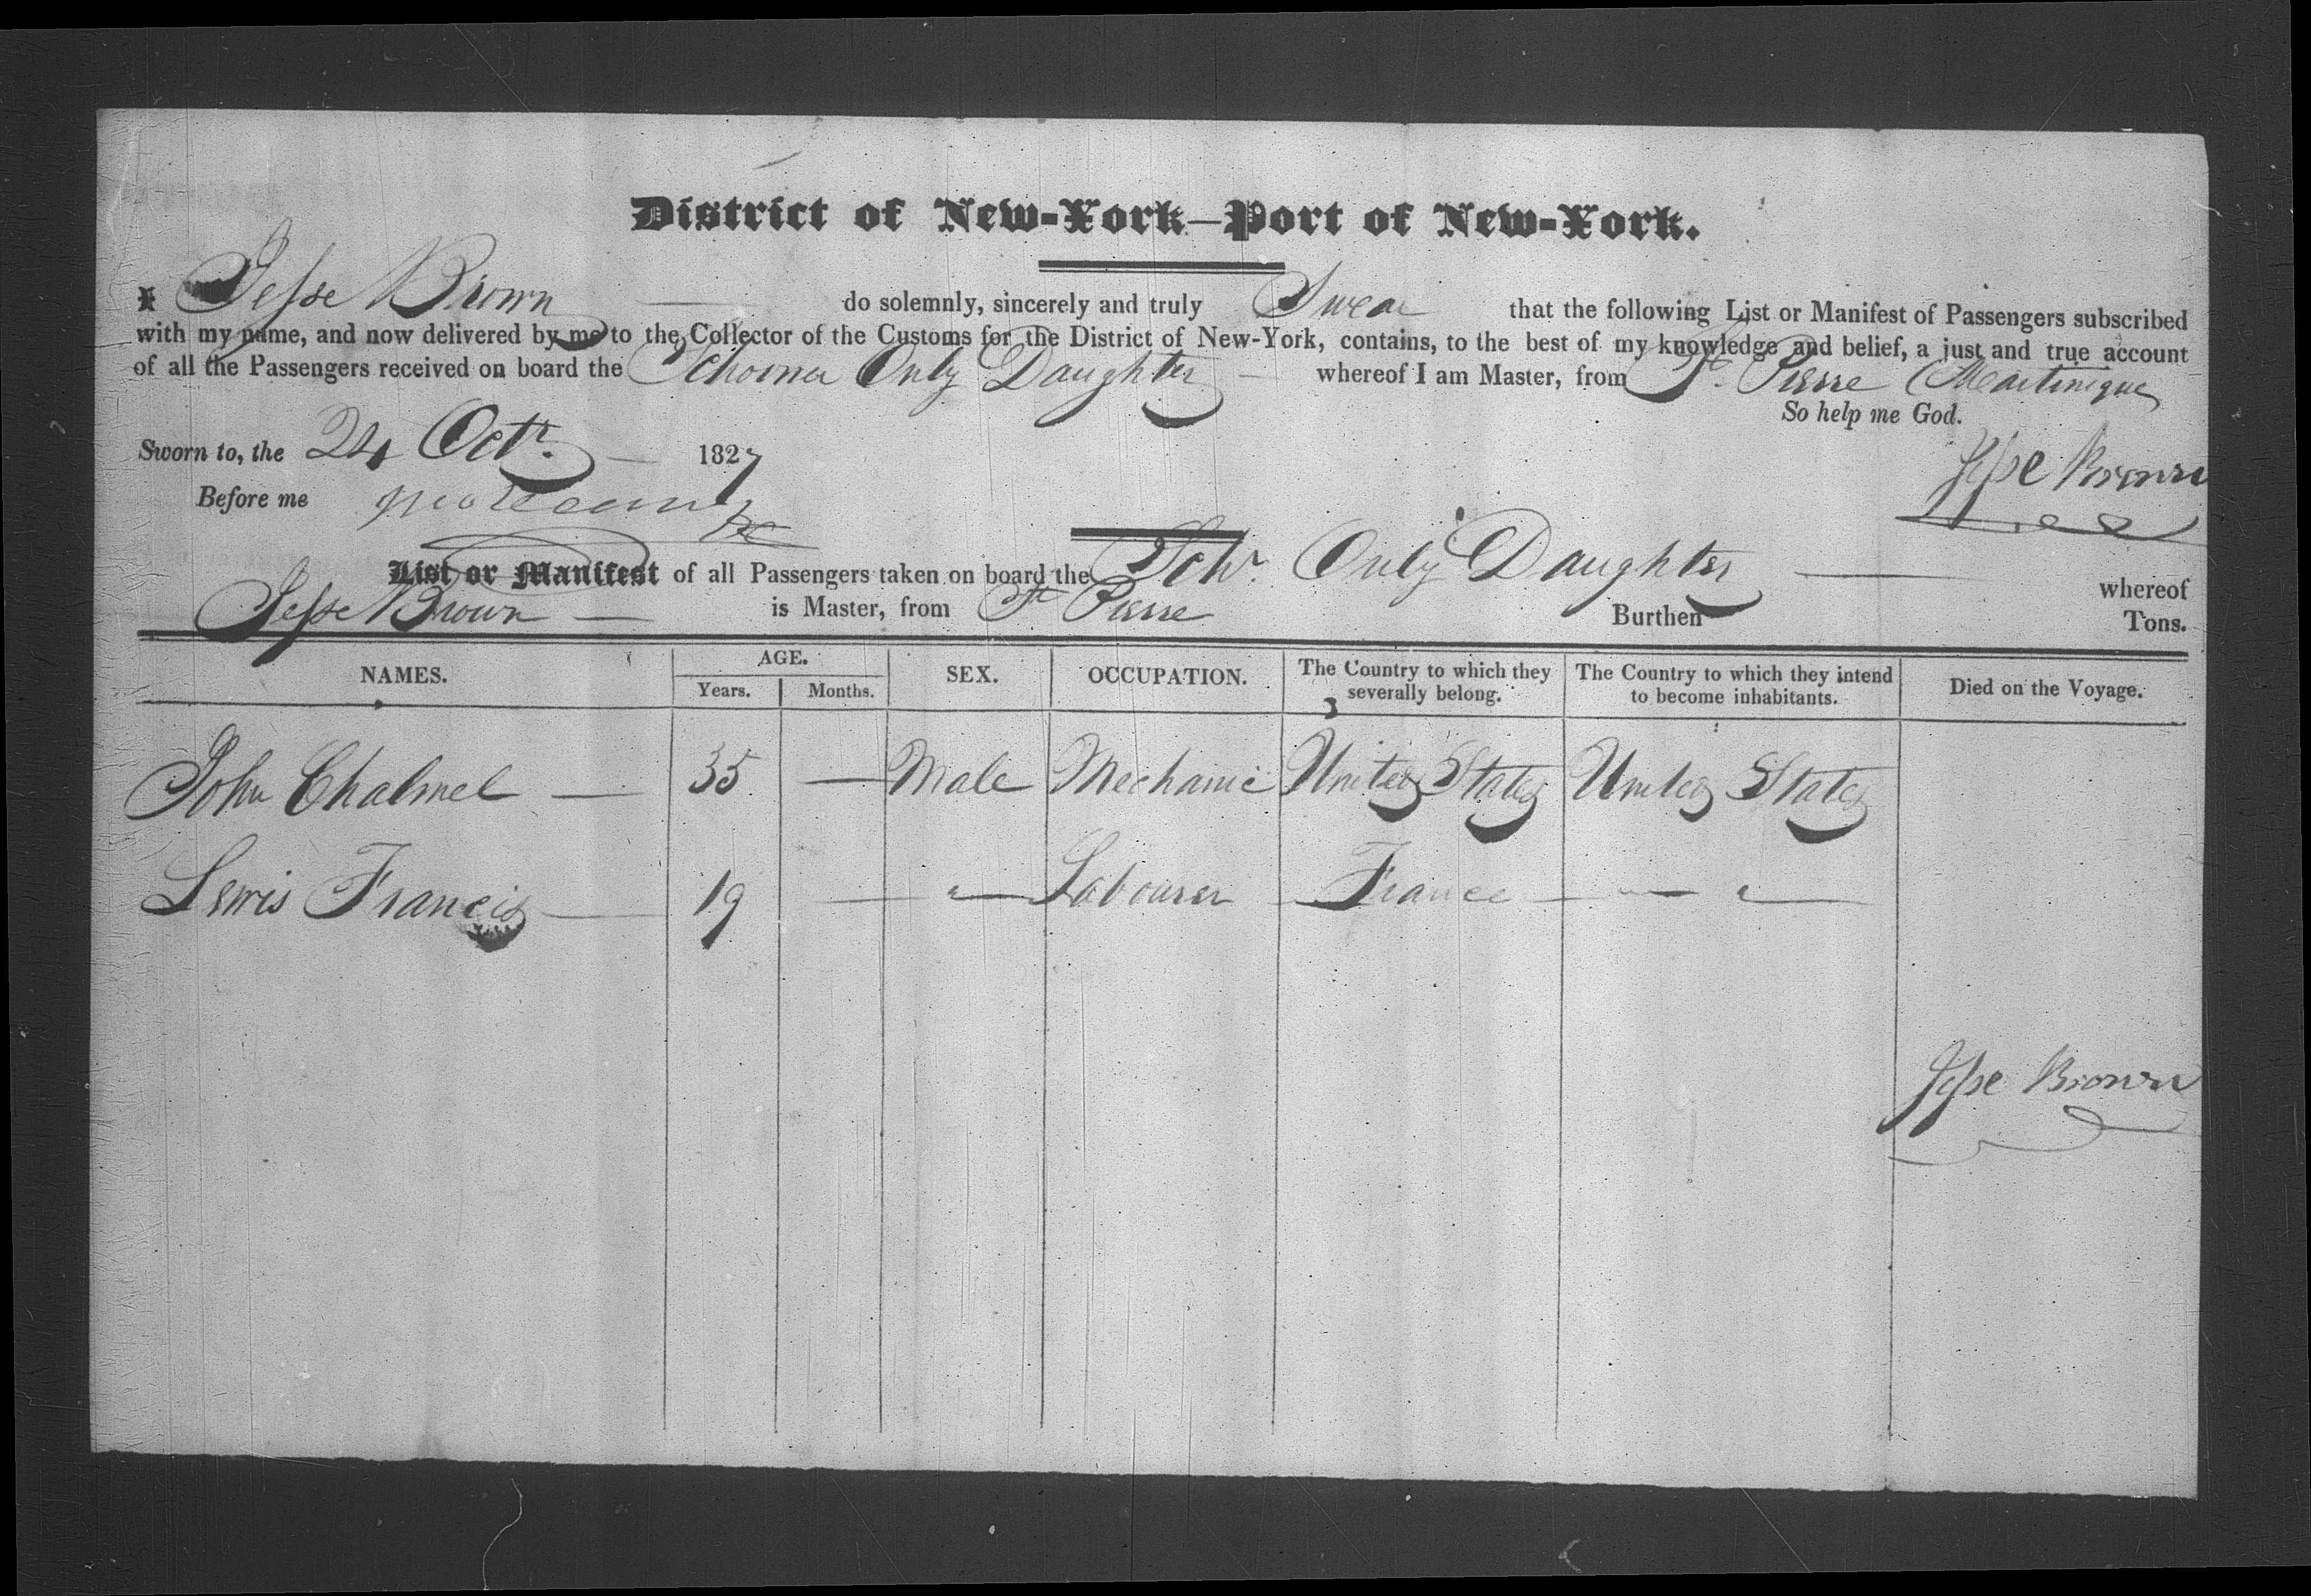 District of New-York—Port of New-York.
I Jesse Brown do solemnly, sincerely and truly Swear that the following List or Manifest of Passengers subscribed
with my name, and now delivered by me to the Collector of the Customs for the District of New-York, contains, to the best of my knowledge and belief, a just and true account
of all the Passengers received on board the Schooner Only Daughter whereof I am Master, from St. Pierre Martinique
So help me God.
Sworn to, the 24 Octr. 1827 Jesse Brown
Before me
List or Manifest of all Passengers taken on board the Schr. Only Daughter whereof
Jesse Brown is Master, from St Pierre Burthen Tons.
NAMES. AGE. SEX. OCCUPATION. The Country to which they severally belong. The Country to which they intend to become inhabitants. Died on the Voyage.
Years. Months.
John Chalmel — 35 — Male Mechanic United States United States
Lewis Francis — 19 — " Labourer France — "
Jesse Brown